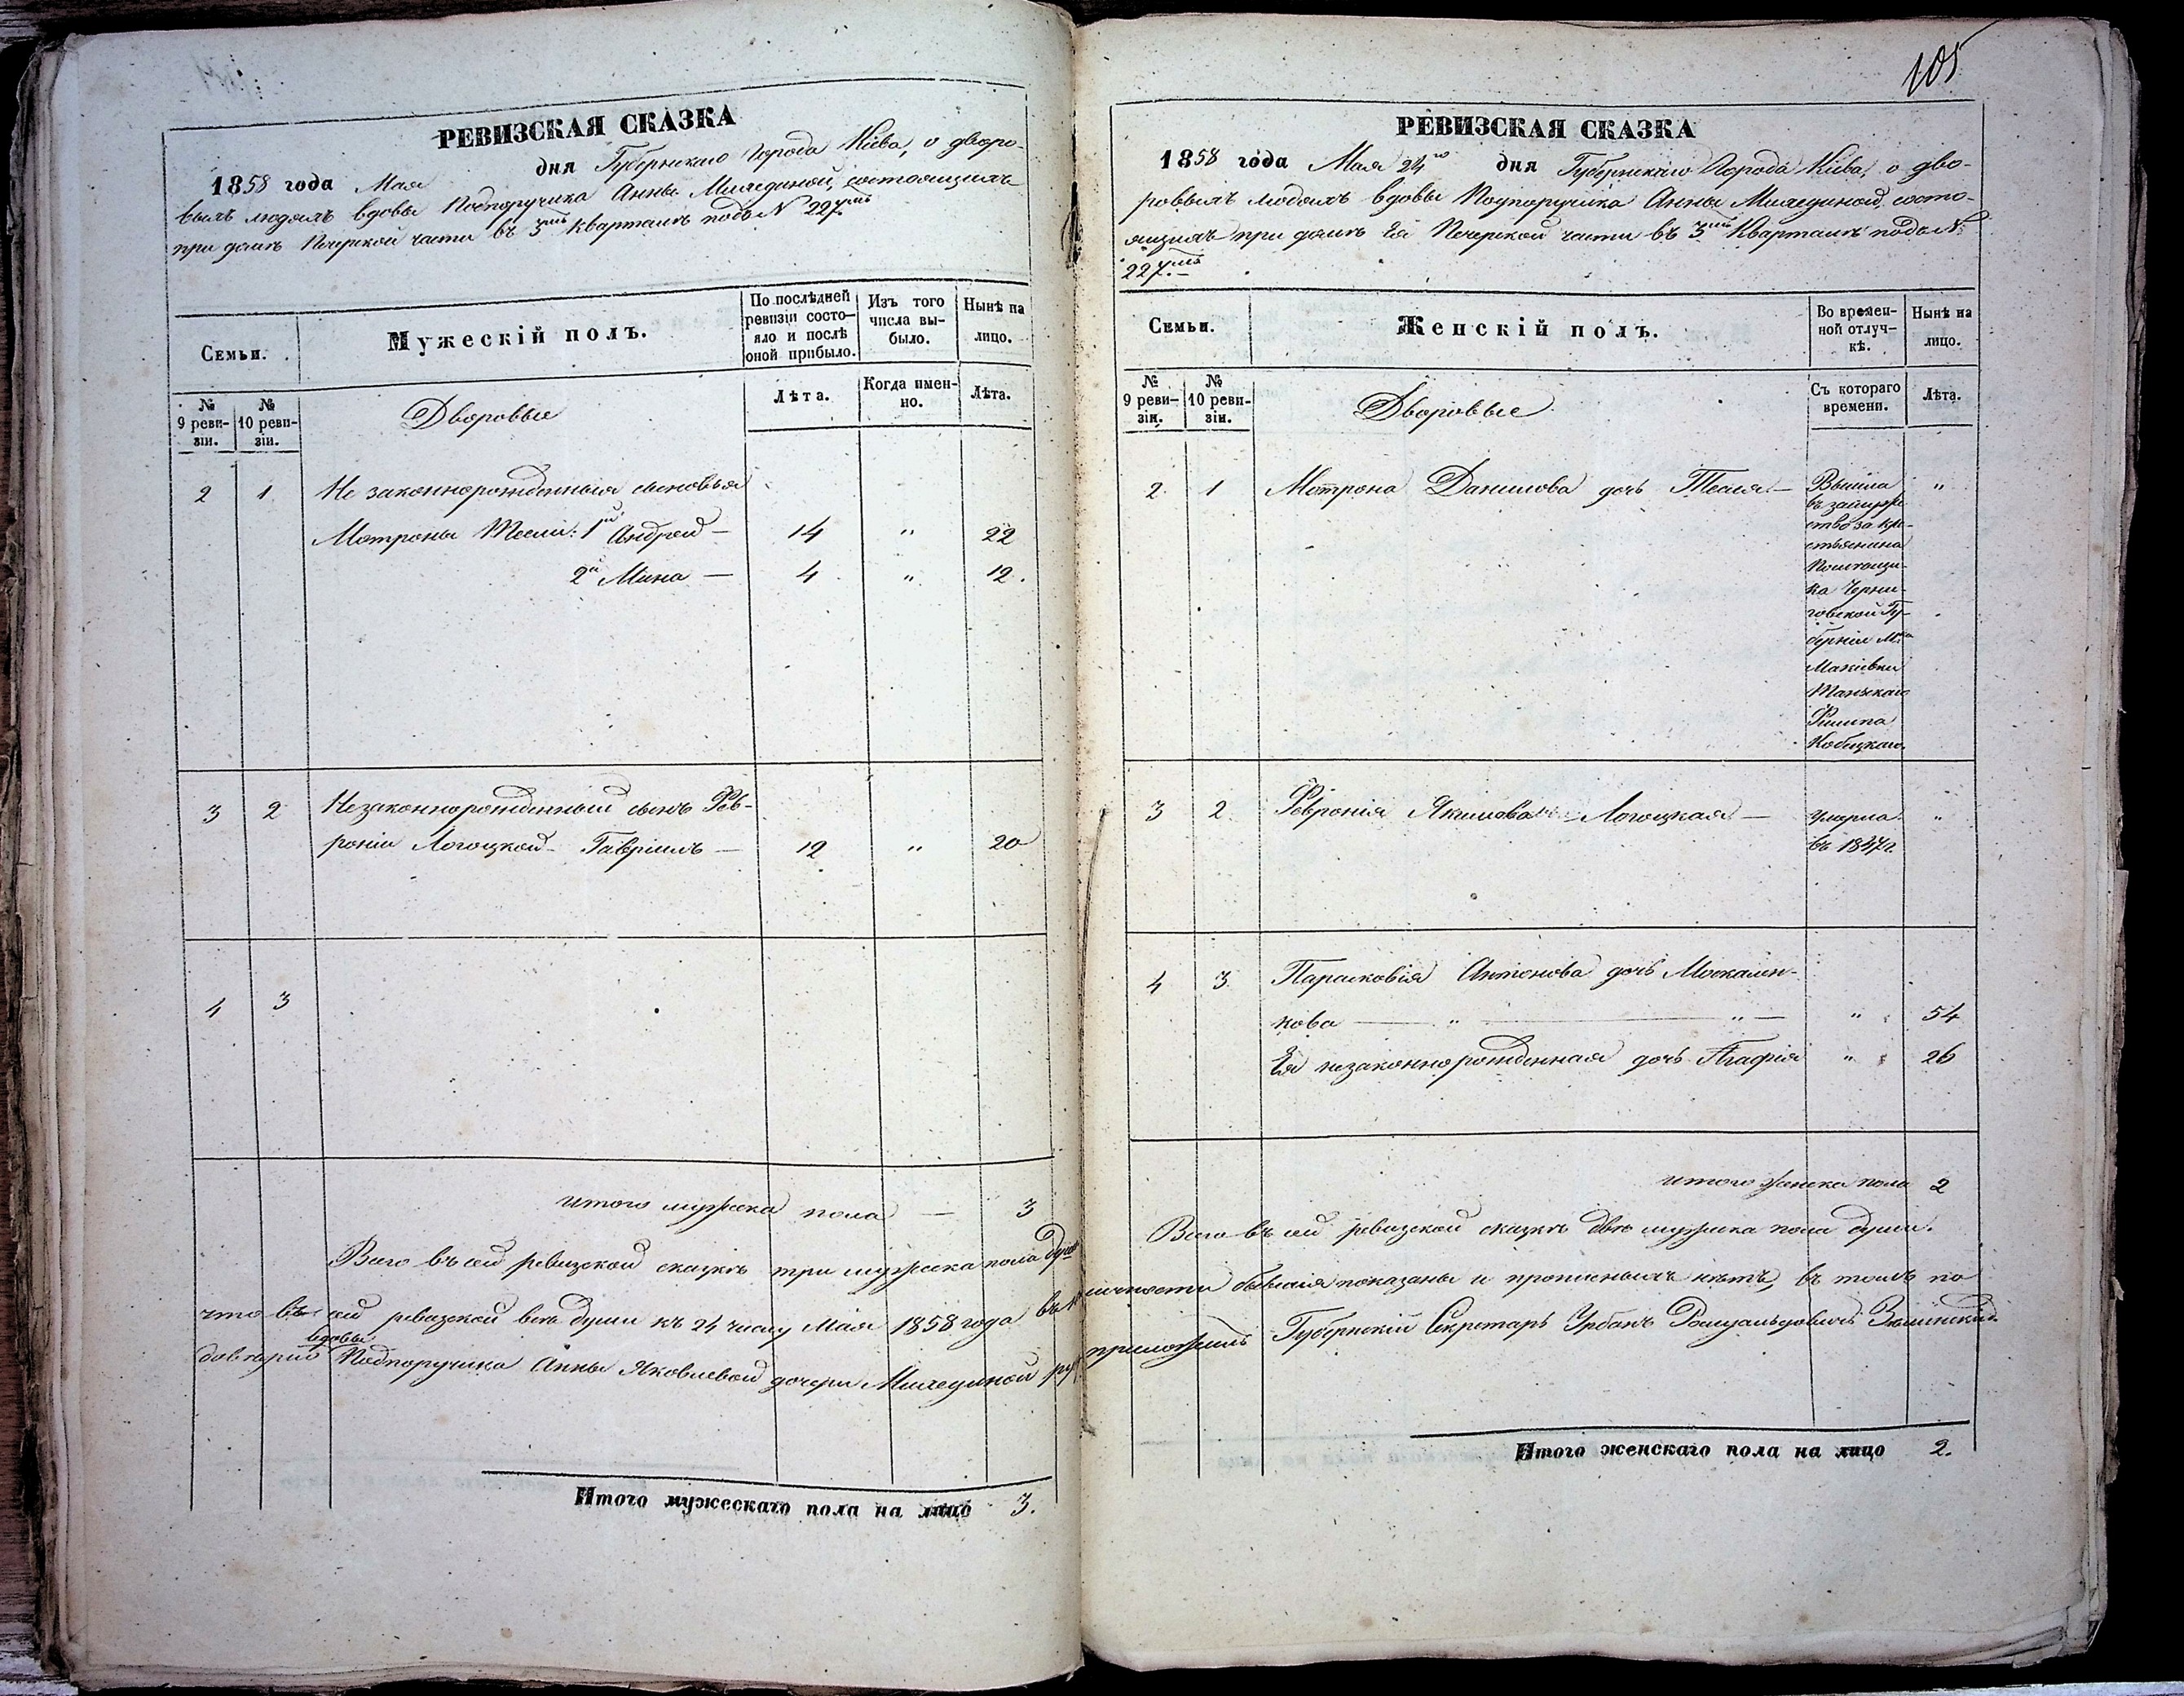 РЕВИЗСКАЯ СКАЗКА
1858 года Мая дня Губернскаго Города Кіева, о дворо-
выхъ людяхъ вдовы Подпоручика Анны Милединой, состоящихъ
при домѣ Печерской части въ 3мъ кварталѣ подъ N 227мъ
Семьи.
Мужескій полъ.
По послѣдней
ревизіи состо-
яло и послѣ
оной прибыло.
Изъ того
числа вы-
было.
Нынѣ на
лицо.
№
9 реви-
зіи.
№
10 реви-
зіи.
Дворовые
Лѣта.
Когда имен-
но.
Лѣта.
2 1 Не законнорожденныя сыновья
Мотроны Тесли: 1й Андрей — 14 " 22
2й Мина — 4 " 12.
3 2 Незаконнорожденный сынъ Фев-
роніи Логоцкой - Гавріилъ — 12 " 20
4 3
итого мужеска пола — 3
Всего въ сей ревизской сказкѣ три мужеска пола души
что въ сей ревизской всѣ души къ 24 числу Мая 1858 года
вдовы
Подпоручика Анны Яковлевой дочери Милединой
Итого мужескаго пола на лицо 3.
105
РЕВИЗСКАЯ СКАЗКА
1858 года Мая 24го дня Губернскаго Города Кіева, о дво-
ровыхъ людяхъ вдовы Подпоручика Анны Милединой, состо-
ящихъ при домѣ Ея Печерской части въ 3мъ Кварталѣ подъ №
227мъ
Семьи.
Женскій полъ.
Во времен-
ной отлуч-
кѣ.
Нынѣ на
лицо.
№
9 реви-
зіи.
№
10 реви-
зіи.
Дворовые
Съ котораго
времени.
Лѣта.
2 1 Мотрона Данилова дочь Тесля — Вышла "
въ замуже
ство за кре-
стьянина
Помѣщи-
ка Черни-
говской Гу-
берніи Мка
Макіевки
Филипа
Кобицкаго
3 2. Февронія Якимова Логоцкая — умерла "
въ 1847г.
4 3 Парасковія Антонова дочь Москален-
кова — " — " — " 54
Ея незаконнорожденная дочь Агафія " 26
итого женска пола 2
Всего въ сей ревизской сказкѣ двѣ мужска пола души.
показаны и прописныхъ нѣтъ, въ томъ по
приложилъ Губернскій Секретарь Урбанъ
Итого женскаго пола на лицо 2.